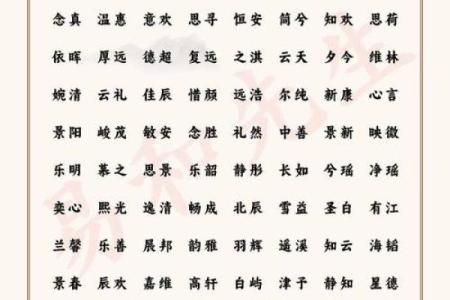 念真 温惠 意欢 思寻 恒安 简兮 知欢 思荷
依晖 厚远 德超 复远 之淇 云天 夕今 维林
婉清 云礼 佳辰 惜颜 远浩 尔纯 新康 心言
景阳 峻茂 敏安 念胜 礼然 中善 景新 映微
乐明 慕之 思景 乐韶 静彤 长如 兮瑶 净瑶
奕心 熙光 逸清 畅成 北辰 雪益 圣白 有江
兰馨 乐善 展邦 韵雅 羽辉 遥溪 知云 海韬
景春 辰欢 嘉维 高轩 白屿 津予 静知 星德
易和先生